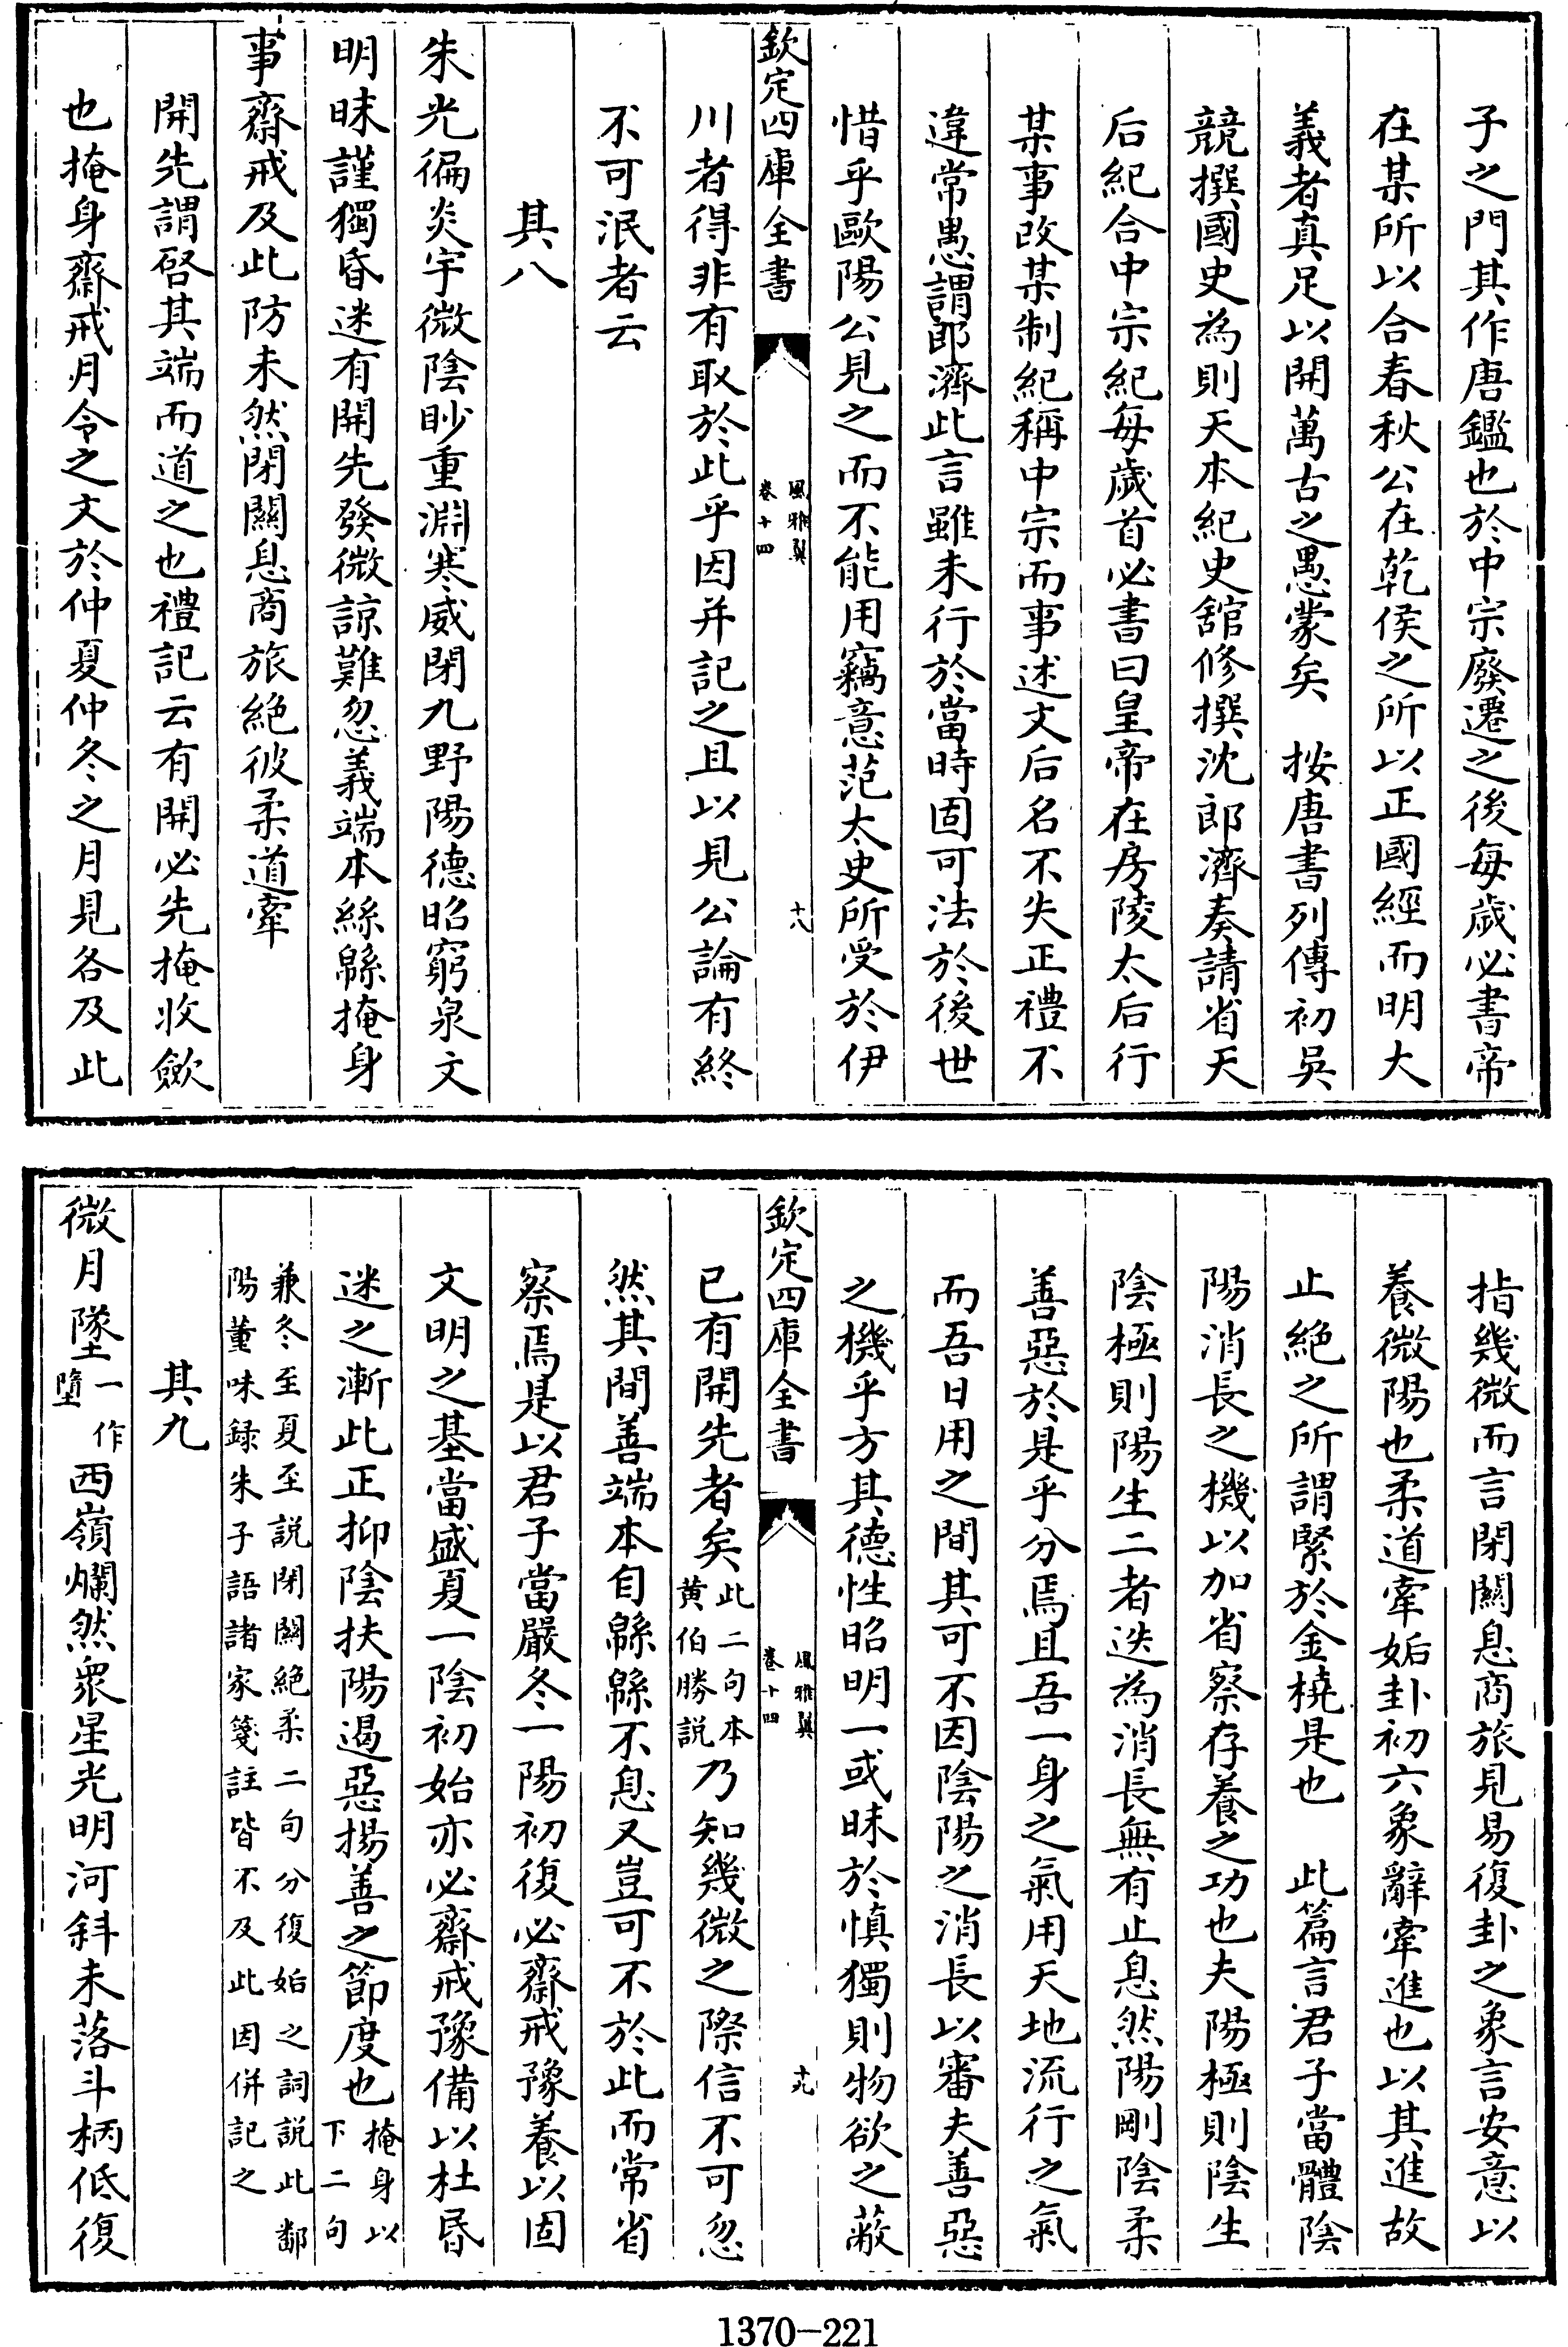 子之門其作唐鑑也於中宗廢遷之後每歲必書帝
在某所以合春秋公在乾侯之所以正國經而明大
義者真足以開萬古之愚蒙矣　按唐書列傳初吳
競撰國史為則天本紀史舘修撰沈郎濟奏請省天
后紀合中宗紀每歲首必書曰皇帝在房陵太后行
某事改某制紀稱中宗而事述文后名不失正禮不
違常愚謂郎濟此言雖未行於當時固可法於後世
惜乎歐陽公見之而不能用竊意范太史所受於伊
欽定四庫全書
風雅翼
卷十四
十八
川者得非有取於此乎因并記之且以見公論有終
不可泯者云
其八
朱光徧炎宇微陰眇重淵寒威閉九野陽德昭窮泉文
明昧謹獨昏迷有開先發微諒難忽義端本絲緜掩身
事齋戒及此防未然閉關息商旅絶彼柔道牽
開先謂啓其端而道之也禮記云有開必先掩收歛
也掩身齋戒月令之文於仲夏仲冬之月見各及此
指幾微而言閉關息商旅見易復卦之象言安意以
養微陽也柔道牽姤卦初六象辭牽進也以其進故
止絶之所謂繫於金梲是也　此篇言君子當體陰
陽消長之機以加省察存養之功也夫陽極則陰生
陰極則陽生二者迭為消長無有止息然陽剛陰柔
善惡於是乎分焉且吾一身之氣用天地流行之氣
而吾日用之間其可不因陰陽之消長以審夫善惡
之機乎方其德性昭明一或昧於慎獨則物欲之蔽
欽定四庫全書
風雅翼
卷十四
十九
已有開先者矣此二句本黄伯勝説乃知幾微之際信不可忽
然其間善端本自緜緜不息又豈可不於此而常省
察焉是以君子當嚴冬一陽初復必齋戒豫養以固
文明之基當盛夏一陰初始亦必齋戒豫備以杜昏
迷之漸此正抑陰扶陽遏惡揚善之節度也掩身以下二句
兼冬至夏至説閉關絶柔二句分復姤之詞説此鄱
陽董味録朱子語諸家箋註皆不及此因併記之
其九
微月墜一作墮西嶺爛然衆星光明河斜未落斗柄低復
1370-221